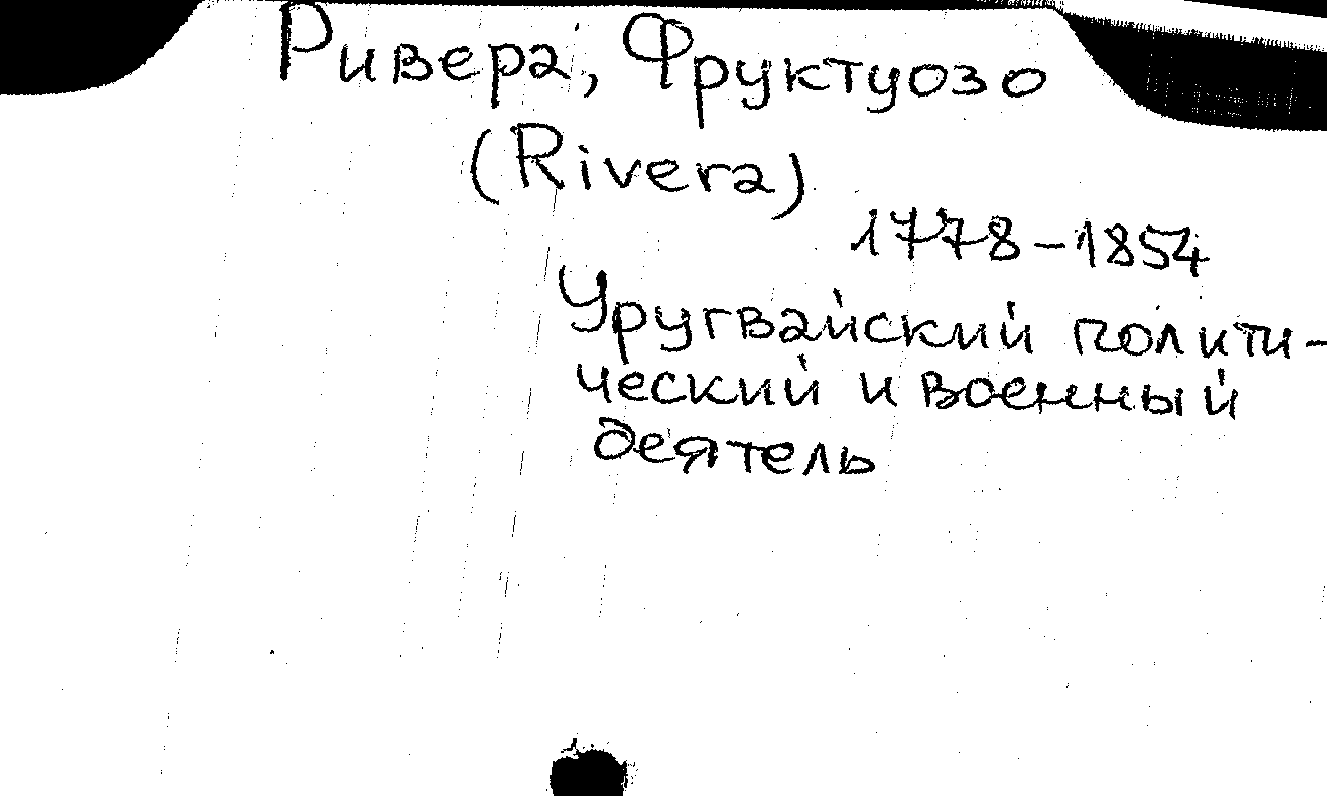 Ривера, Фруктуозо
(Rivera)
1778-1854
Уругвайский полити-
ческий и военный
деятель